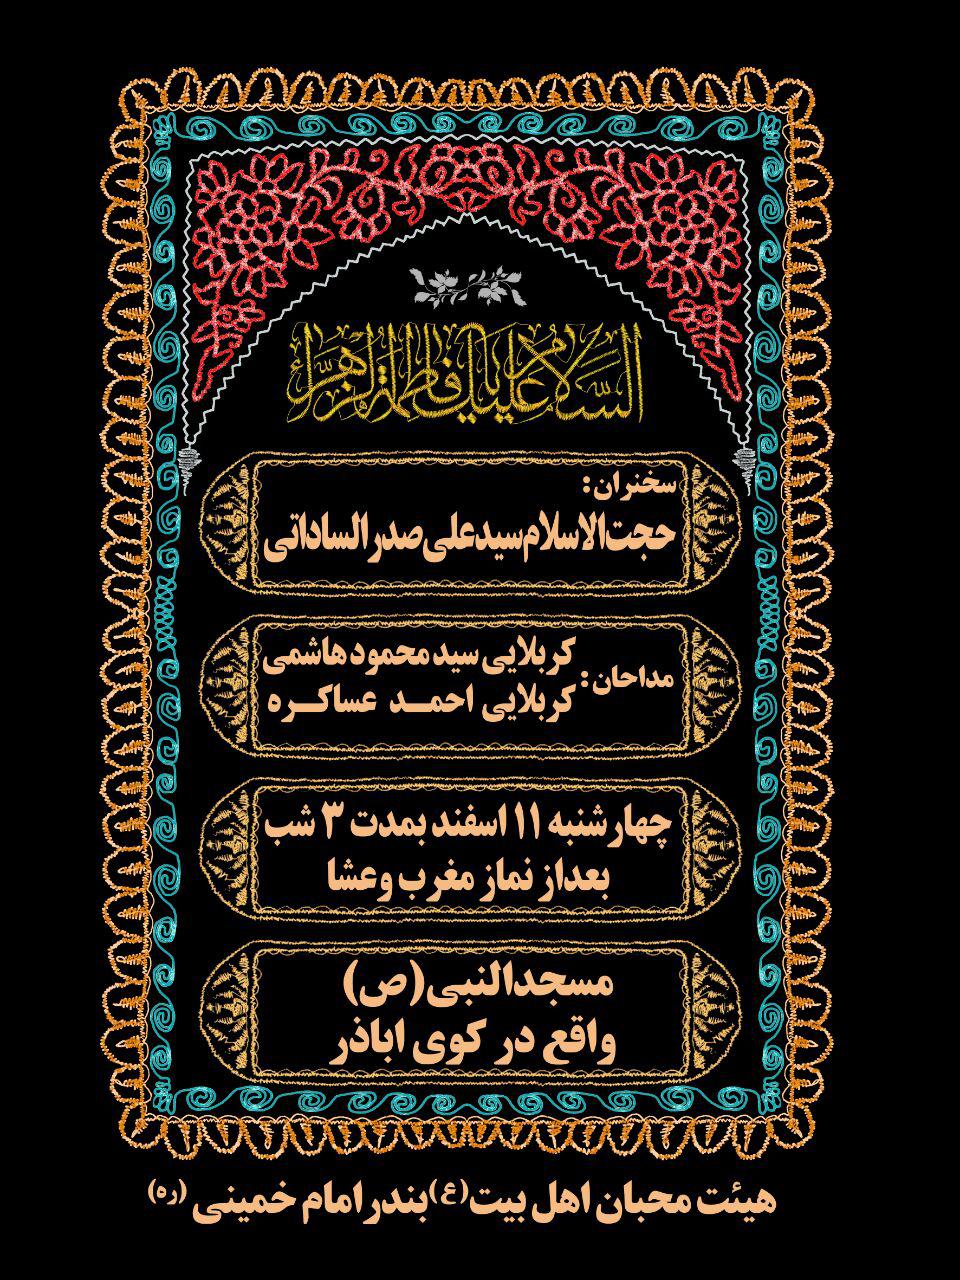 السلام علیک یا فاطمة الزهراء
سخنران:
حجت‌الاسلام سید علی صدرالساداتی
مداحان:
کربلایی سید محمود هاشمی
کربلایی احمد عساکره
چهارشنبه ۱۱ اسفند بمدت ۳ شب
بعداز نماز مغرب وعشا
مسجدالنبی(ص)
واقع در کوی اباذر
هیئت محبان اهل بیت(ع) بندر امام خمینی (ره)